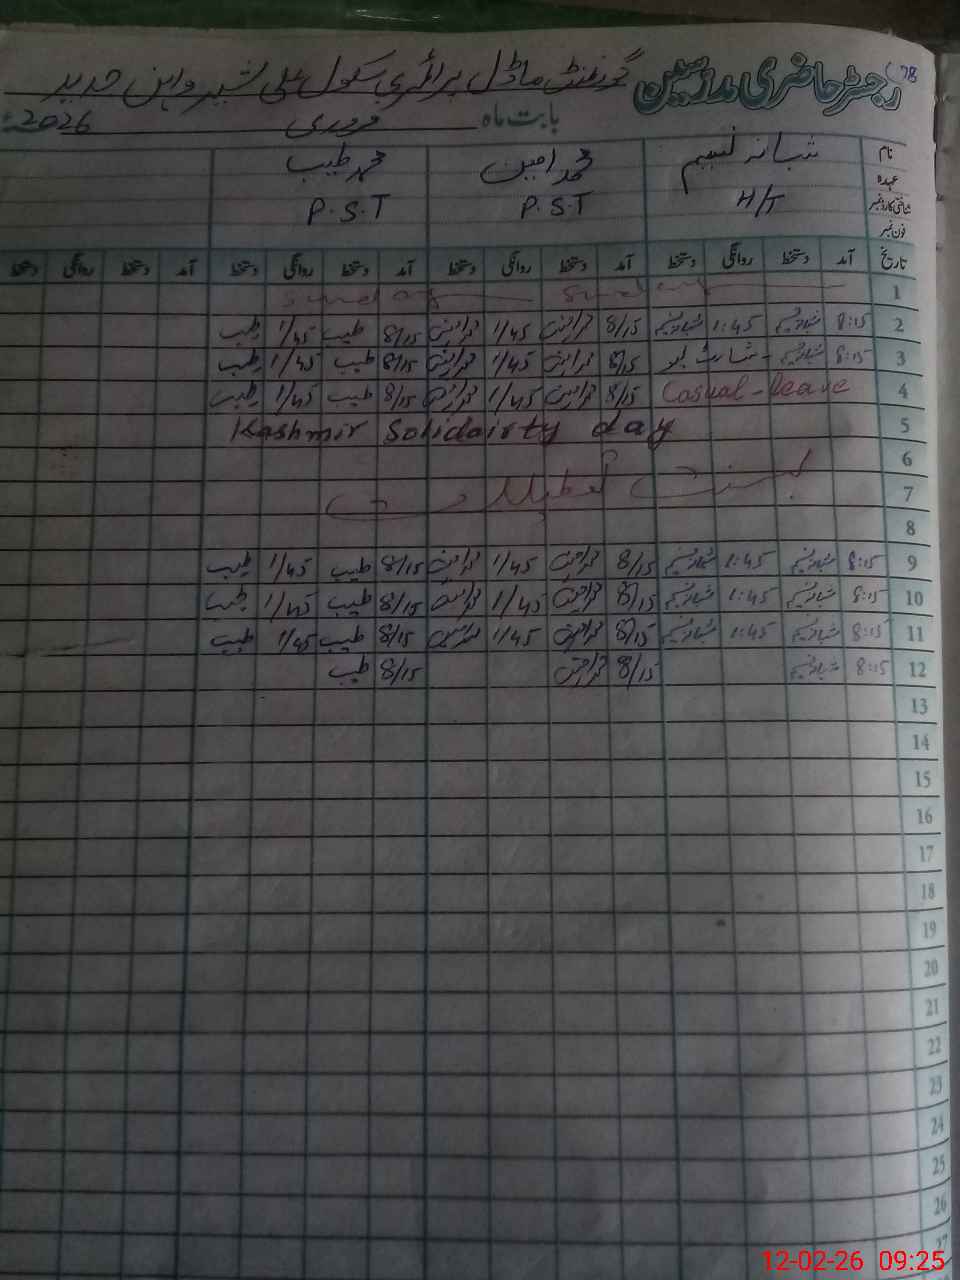 رجسٹر حاضری مدرسین گورنمنٹ ماڈل پرائمری سکول علی شیر واہن جدید
بابت ماہ فروری 2026ء
نام شبانہ نسیم محمد امین محمد طیب
عہدہ
شناختی کارڈ نمبر H/T P.S.T P.S.T
فون نمبر
تاریخ آمد دستخط روانگی دستخط آمد دستخط روانگی دستخط آمد دستخط روانگی دستخط آمد دستخط روانگی دستخط
1 Sunday Sunday
2 8:15 شبانہ نسیم 1:45 شبانہ نسیم 8/15 محمد امین 1/45 محمد امین 8/15 طیب 1/45 طیب
3 8:15 شبانہ نسیم شارٹ لیو 8/15 محمد امین 1/45 محمد امین 8/15 طیب 1/45 طیب
4 Casual-leave 8/15 محمد امین 1/45 محمد امین 8/15 طیب 1/45 طیب
5 Kashmir Solidairty day
6
7 بسنت تعطیلات
8
9 8:15 شبانہ نسیم 1:45 شبانہ نسیم 8/15 محمد امین 1/45 محمد امین 8/15 طیب 1/45 طیب
10 8:15 شبانہ نسیم 1:45 شبانہ نسیم 8/15 محمد امین 1/45 محمد امین 8/15 طیب 1/45 طیب
11 8:15 شبانہ نسیم 1:45 شبانہ نسیم 8/15 محمد امین 1/45 محمد امین 8/15 طیب 1/45 طیب
12 8:15 شبانہ نسیم 8/15 محمد امین 8/15 طیب
13
14
15
16
17
18
19
20
21
22
23
24
25
26
27
12-02-26 09:25